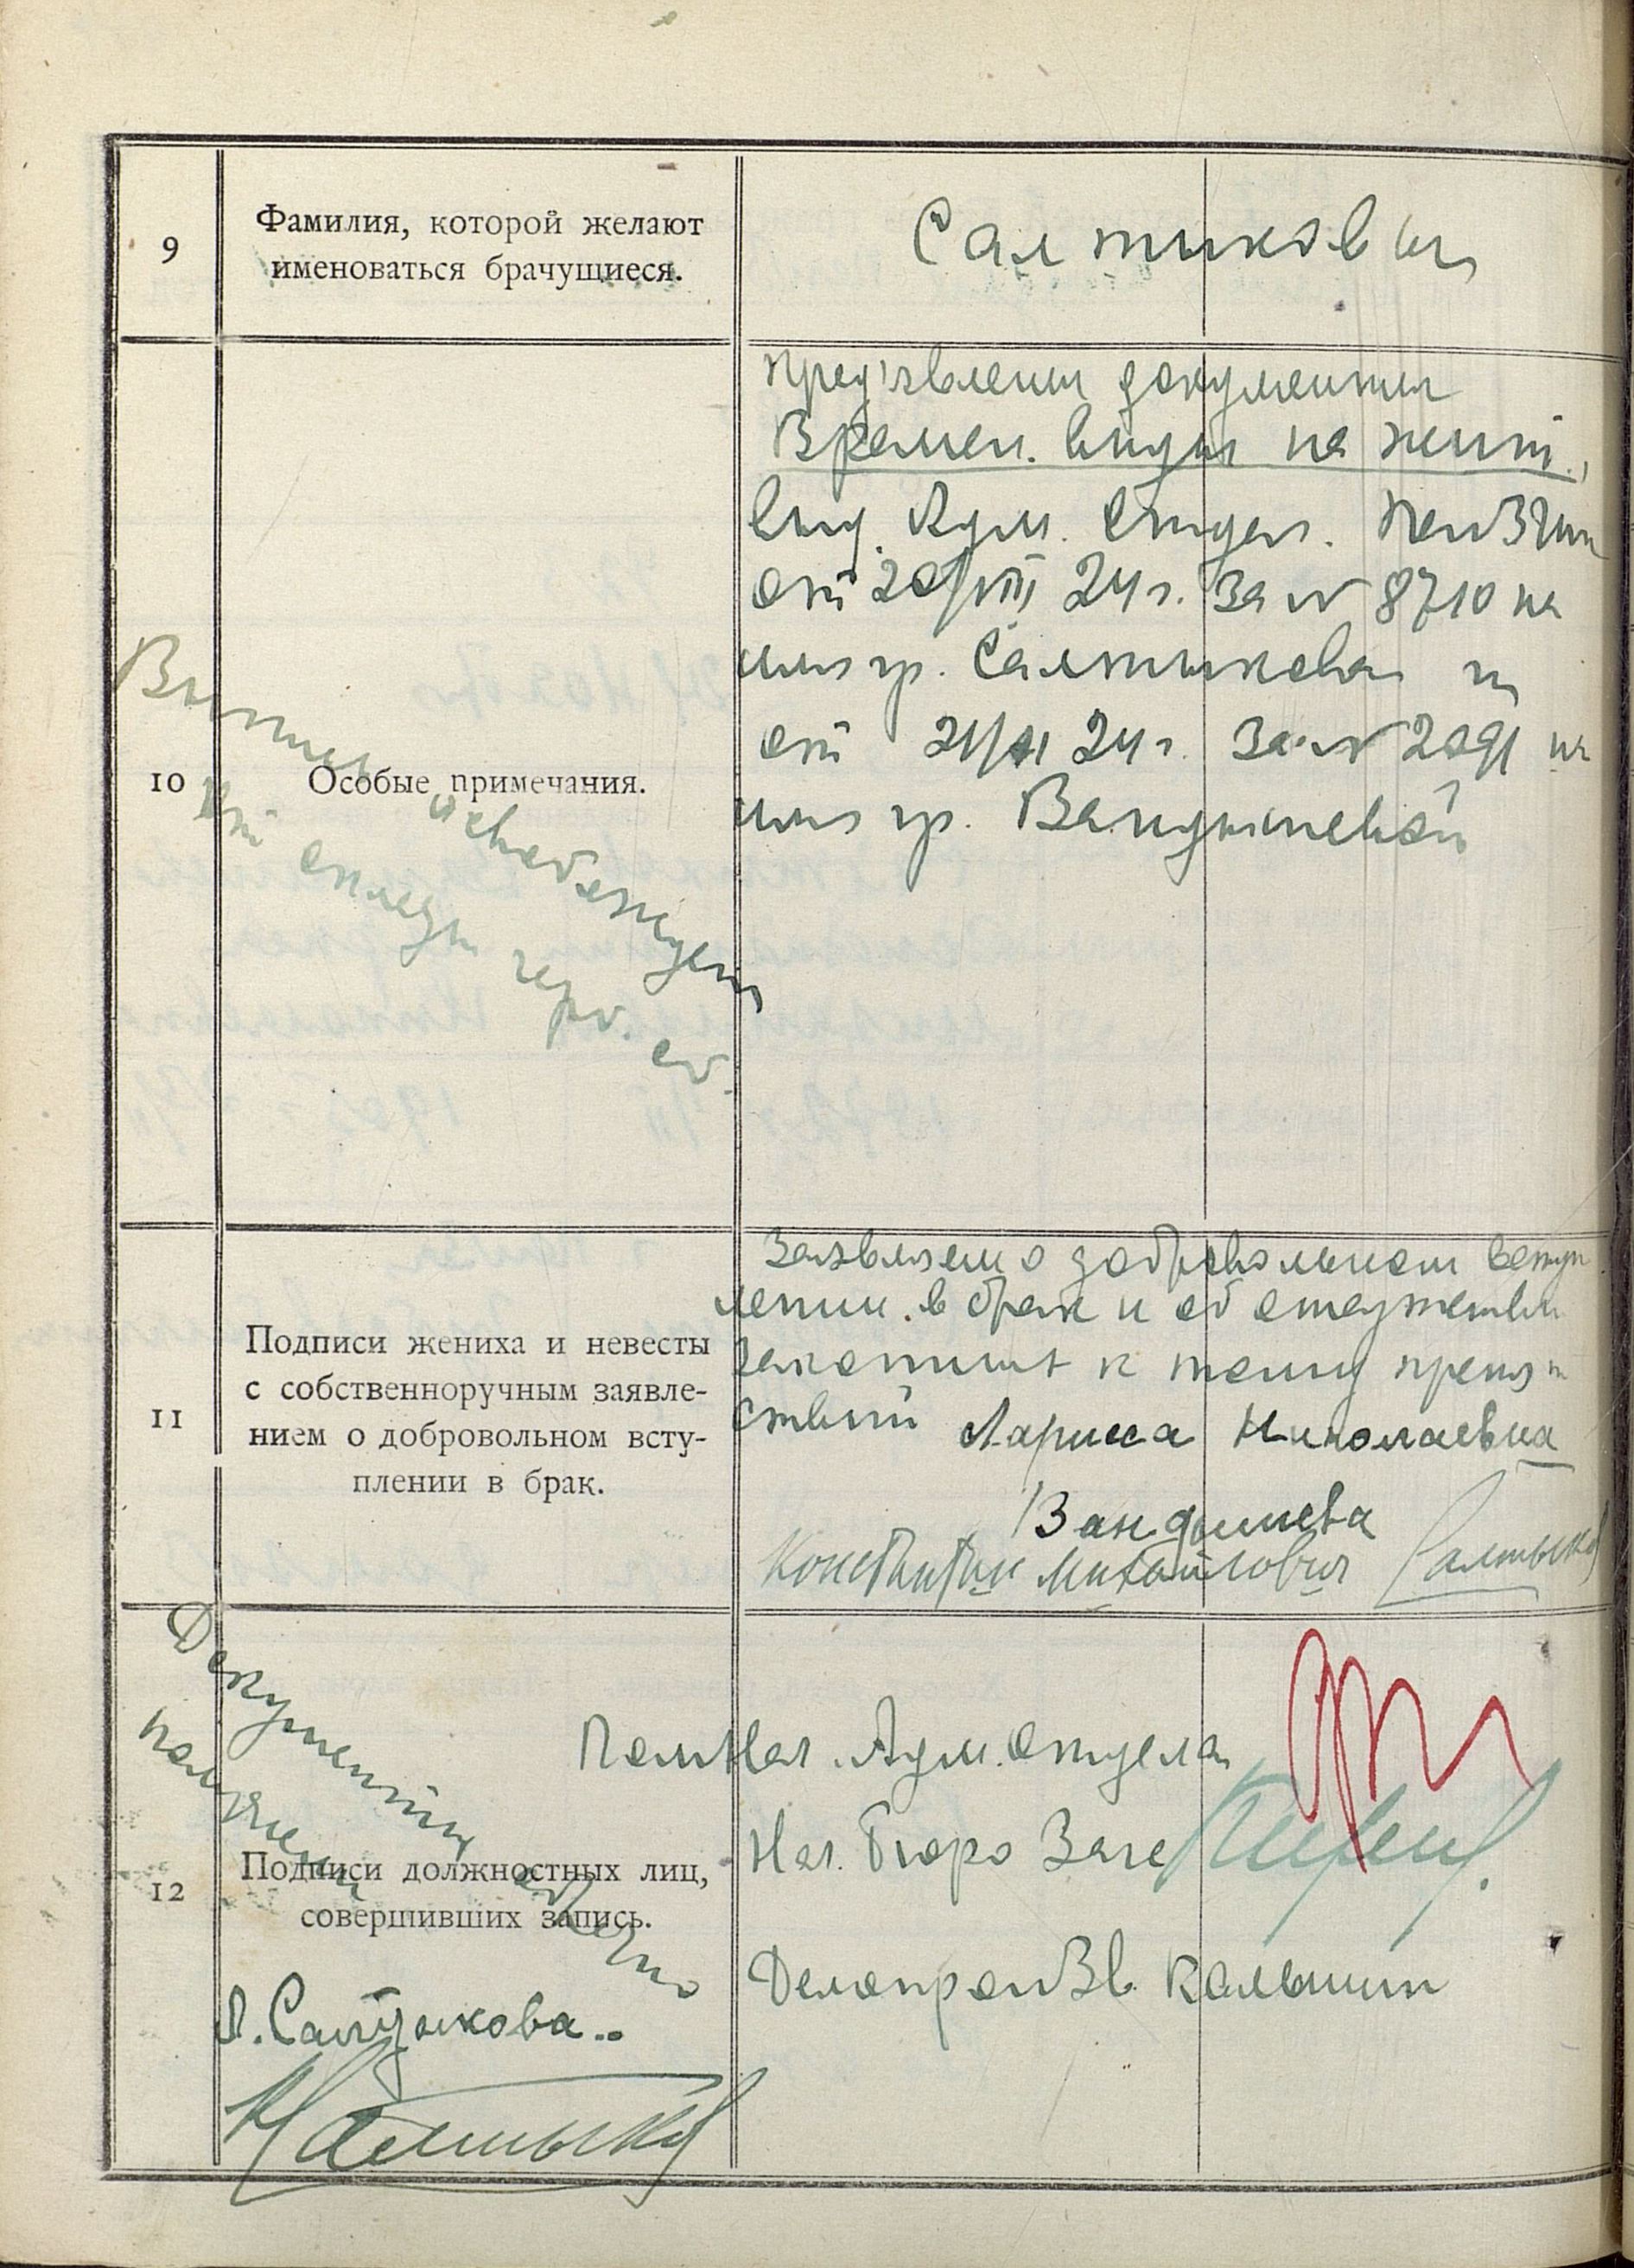 9
Фамилия, которой желают
именоваться брачущиеся.
Салтиковы
10
Особые примечания.
Пред'явлены документы
Времен. виды на жит.,
выд. Адм. отдел.
от 20/VIII 24 г. за № 8710 на
имя гр. Салтыкова и
от 21/XI 24 г. за № 2091 на
имя гр. Вандышевой
Выписи
от оплаты герб. сб.
11
Подписи жениха и невесты
с собственноручным заявле-
нием о добровольном всту-
плении в брак.
Заявляем о добровольном вступ
лении в брак и об отсутствии
законных к тому препят
ствий Лариса Николаевна
Вандышева
Константин Михайлович Салтыков
12
Подписи должностных лиц,
совершивших запись.
Пом Нач. Адм. отдела
Нач. Бюро Загс
Делопроизв. Калынин
Документы
получены обратно
Л. Салтыкова..
КСалтыков